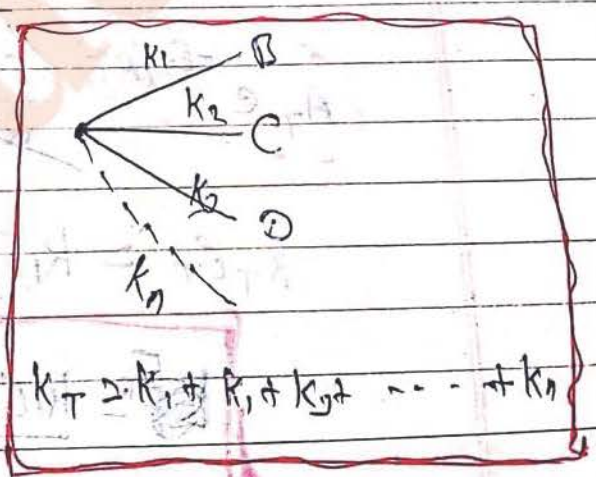 K1 B
K2 C
K3 D
Kn
K_T = K_1 + K_2 + K_3 + ---- + K_n